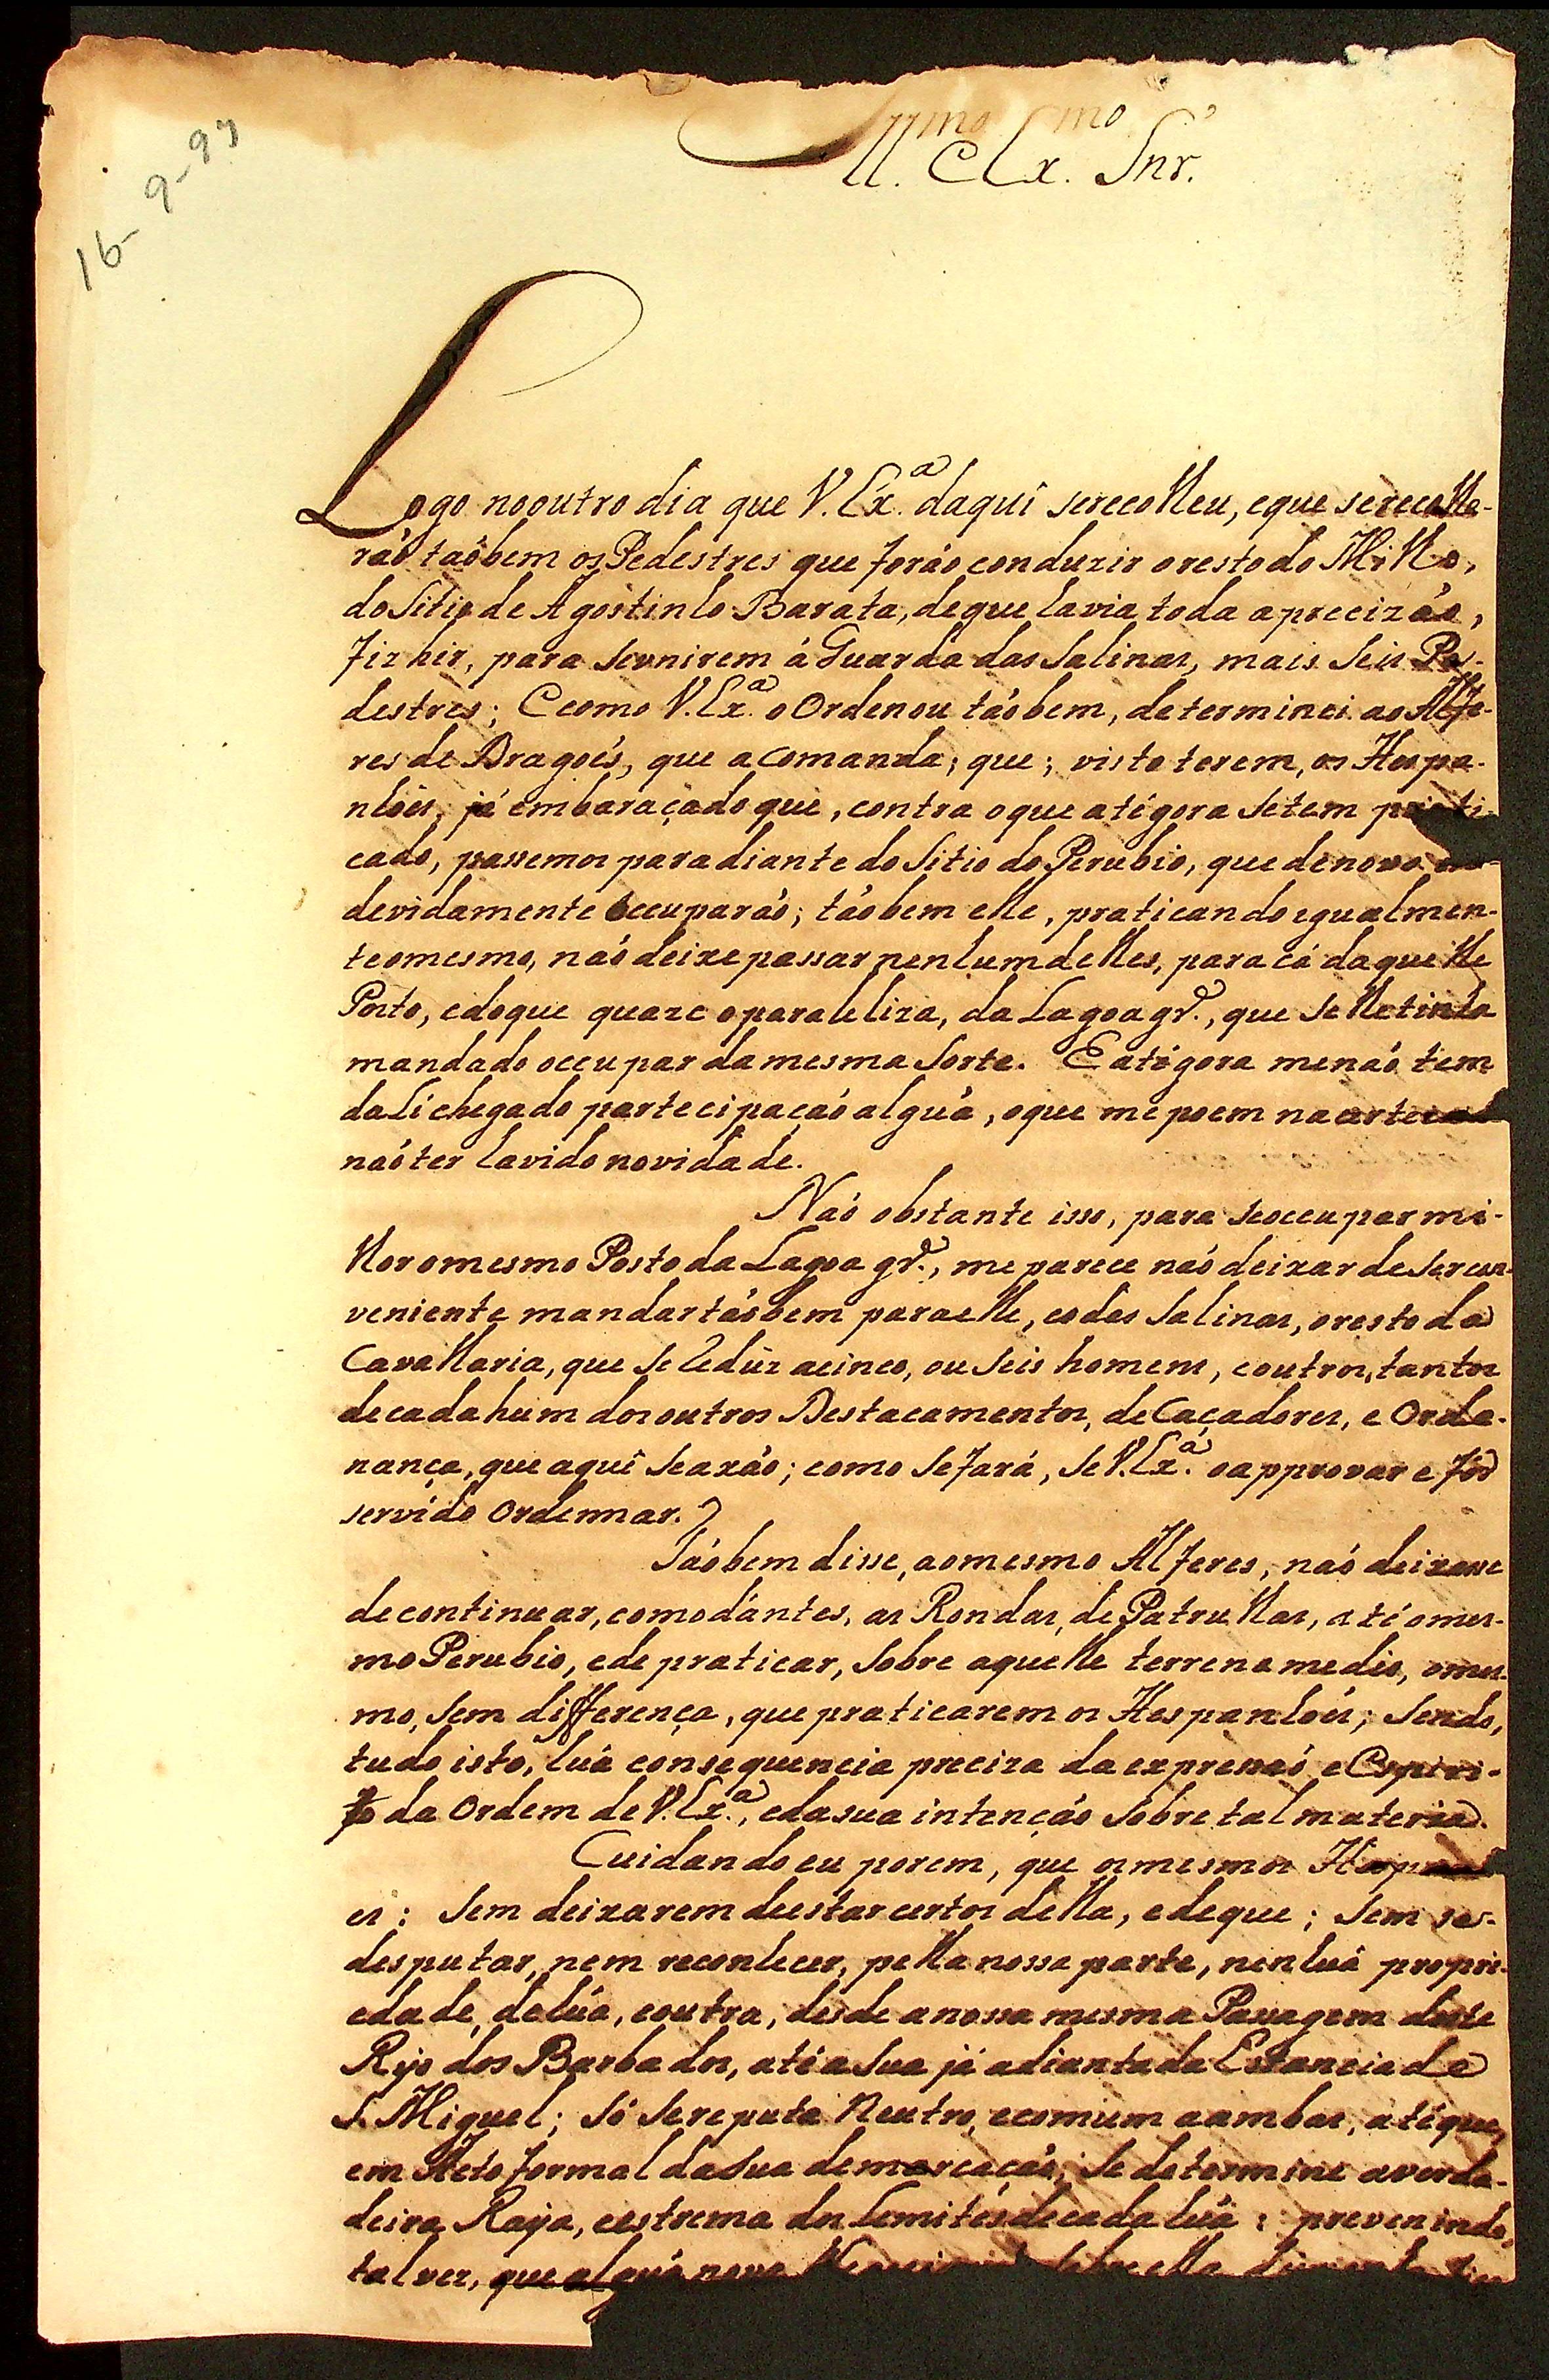 16-9-97
Ill.mo e Ex.mo Snr.
Logo nooutro dia que V. Ex.a daqui serecolheu, eque serecolhe-
rão taõbem os Pedestres que forão conduzir oresto do Milho,
do Sitio de Agostinho Barata, deque havia toda a precizão,
fiz hir, para seunirem á Guarda das Salinas, mais seis Pe-
destres; E como V. Ex.a o Ordenou tãobem, determinei ao Alfe-
res de Dragoẽs, que a comanda; que; visto terem, os Hespa-
nhóes, já embaraçado que, contra oque atégora setem prati-
cado, passemos para diante do Sitio do Perubio, que denovo in-
devidamente occuparão; tãobem elle, praticando egualmen-
te omesmo, naõ deixe passar nenhum delles, para cá daquelle
Porto, edoque quaze oparaleliza, da Lagoa gr.de, que selhe tinha
mandado occupar da mesma sorte. E atégora menaõ tem
dali chegado partecipaçaõ algũa, oque me poem na certeza de
naõ ter havido novidade.
Naõ obstante isso, para seoccupar mi-
lhor omesmo Posto da Lagoa gr.de, me parece naõ deixar de ser con-
veniente mandar tãobem para elle, eodas Salinas, oresto da
Cavallaria, que se reduz acinco, ou seis homens, eoutros tantos
de cada hum dos outros Destacamentos, de Caçadores, e Orde-
nança, que aqui seaxão; como sefará, se V. Ex.a oapprovar e fôr
servido Ordennar.
Tãobem disse, aomesmo Alferes, naõ deixasse
de continuar, como d'antes, as Rondas, de Patrulhas, até omes-
mo Perubio, ede praticar, sobre aquelle terreno medio, omes-
mo, sem differença, que praticarem os Hespanhóes; sendo,
tudo isto, hũa consequencia preciza da expressaõ e Espiri-
to da Ordem de V. Ex.a, edasua intenção sobre tal materia.
Cuidando eu porem, que os mesmos Hespanho
es: sem deixarem deestar certos della, edeque; sem se-
desputar, nem reconhecer, pella nossa parte, nenhũa propri-
edade, dehũa, eoutra, desde anossa mesma Passagem deste
Rijo dos Barbados, até a sua já adiantada Estancia de
S. Miguel; só serepute Neutro, ecomum aambas, atéque,
em Acto formal dasua demarcaçaõ, se determine averda-
deira Raya, eestrema dos Lemites decada hũa: prevenindo,
talvez, que algũa nova